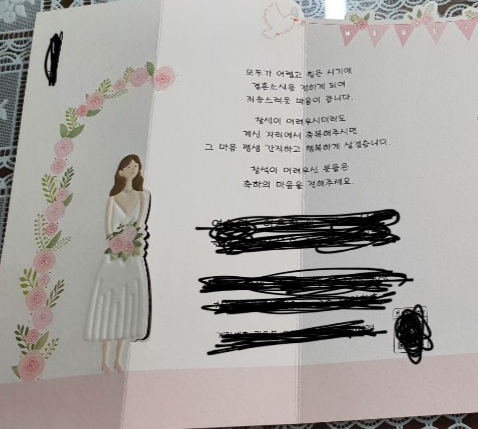 모두가 어렵고 힘든 시기에
결혼소식을 전하게 되어
죄송스러운 마음이 큽니다.
참석이 어려우시더라도
계신 자리에서 축복해주시면
그 마음 평생 간직하고 행복하게 살겠습니다.
참석이 어려우신 분들은
축하의 마음을 전해주세요.